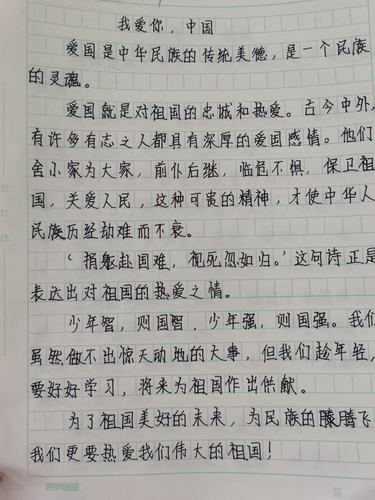 我爱你，中国
爱国是中华民族的传统美德，是一个民族
的灵魂。
爱国就是对祖国的忠诚和热爱。古今中外，
有许多有志之人都具有深厚的爱国感情。他们
舍小家为大家，前仆后继，临危不惧，保卫祖
国，关爱人民，这种可贵的精神，才使中华人
民族历经劫难而不衰。
“捐躯赴国难，视死忽如归。”这句诗正是
表达出对祖国的热爱之情。
少年智，则国智．少年强，则国强。我们
虽然做不出惊天动地的大事，但我们趁年轻，
要好好学习，将来为祖国作出供献。
为了祖国美好的未来，为民族的腾飞
我们更要热爱我们伟大的祖国！